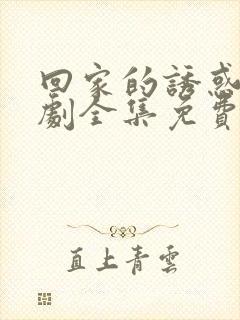 回家的誘惑
劇全集免費
直上青雲